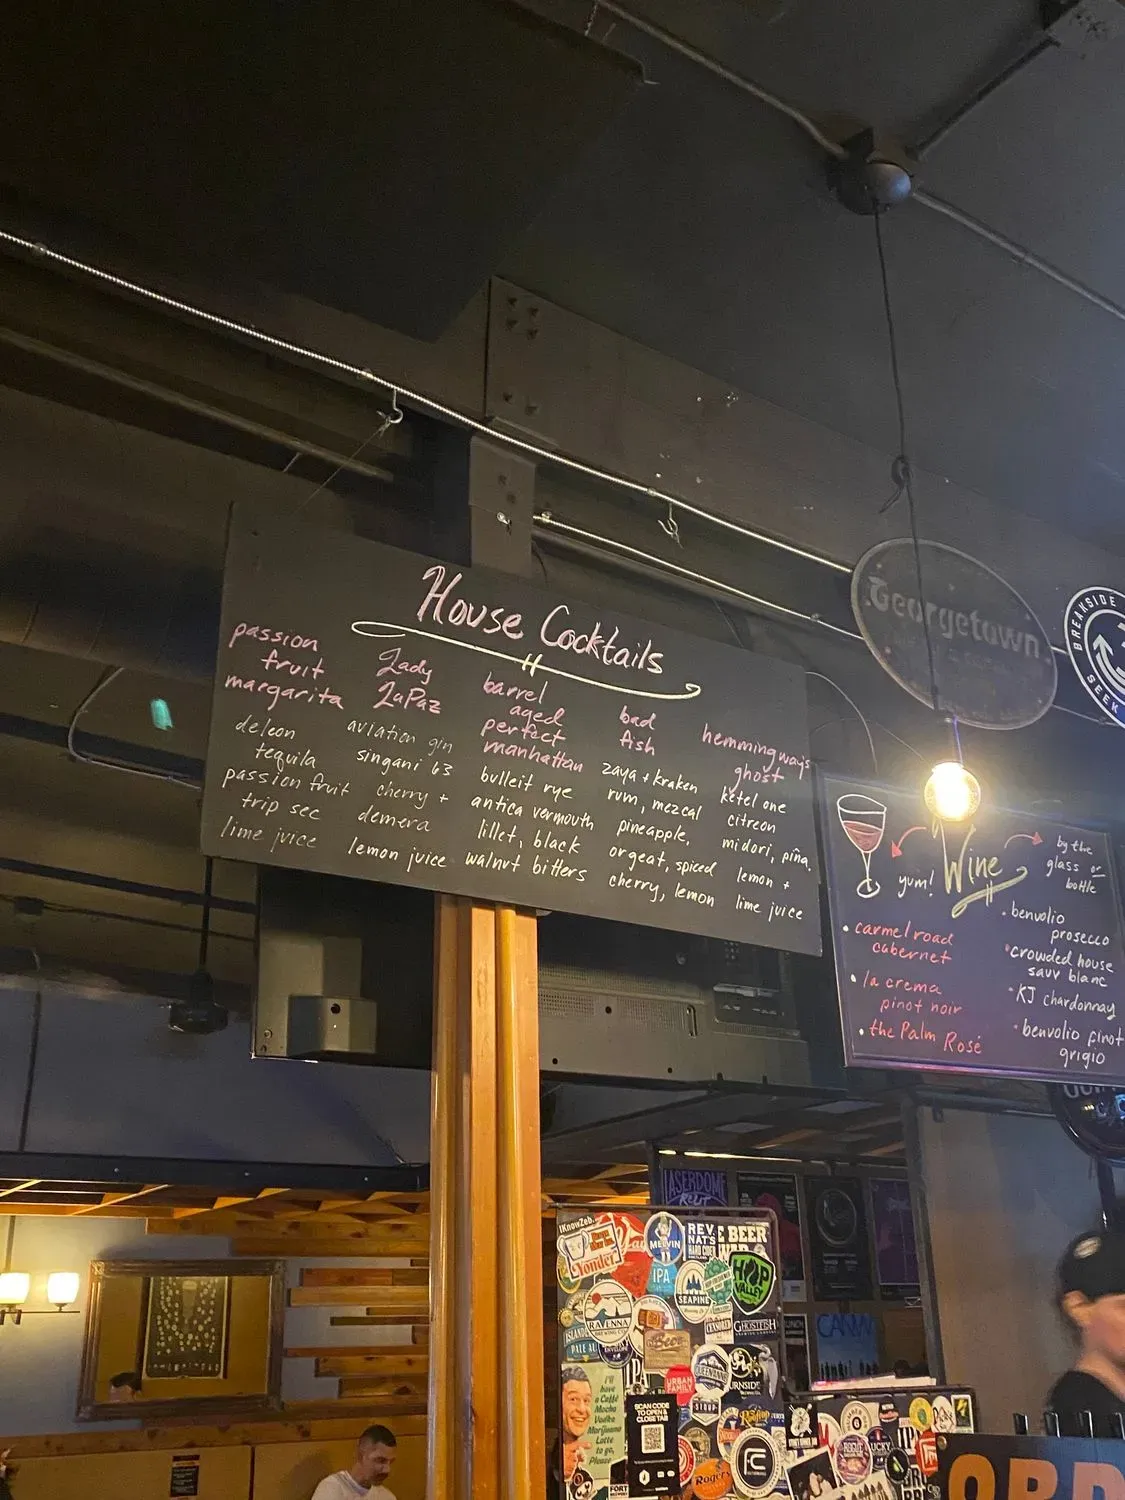 House Cocktails
passion
fruit
margarita
deleon
tequila
passion fruit
trip sec
lime juice
Lady
LaPaz
aviation gin
singani 63
cherry +
demera
lemon juice
barrel
aged
perfect
manhattan
bulleit rye
antica vermouth
lillet, black
walnut bitters
bad
fish
zaya + kraken
rum, mezcal
pineapple,
orgeat, spiced
cherry, lemon
hemmingways
ghost
ketel one
citreon
midori, piña,
lemon +
lime juice
Georgetown
BREAKSIDE
SEEK
yum!
Wine
by the
glass or
bottle
• carmel road
cabernet
• la crema
pinot noir
• the Palm Rosé
• benvolio
prosecco
• crowded house
sauv blanc
• KJ chardonnay
• benvolio pinot
grigio
LASERDOME
IKnowZeb.
Yonder
MELVIN
IPA
REV.
NAT'S
HARD CIDER
BEER
SEAPINE
HOP
VALLEY
RAVENNA
BREWING CO
PALE AL
GHOSTFISH
URBAN
FAMILY
STOUP
BURNSIDE
I'll
have a
Caffé
Mocha
Vodka
Marijuana
Latte
to go,
Please
SCAN CODE
TO OPEN &
CLOSE TAB
FORT
Rogers
FC
ROGUE
LUCKY
ORD